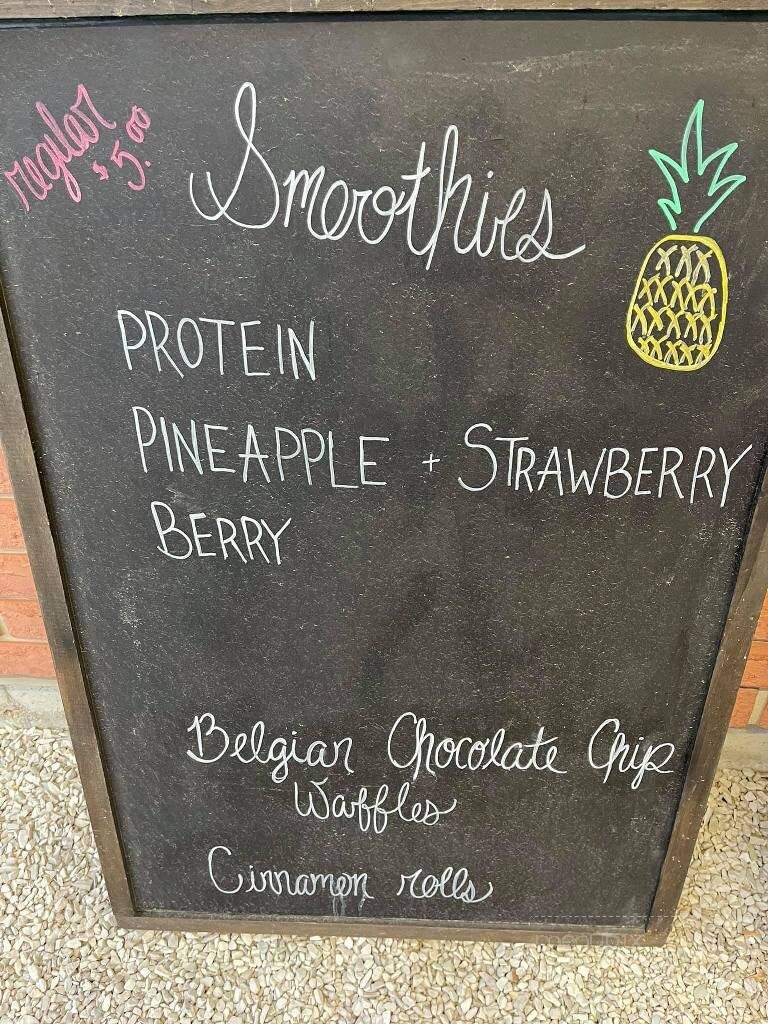 regular
$5.00
Smoothies
PROTEIN
PINEAPPLE + STRAWBERRY
BERRY
Belgian Chocolate Chip
Waffles
Cinnamon rolls